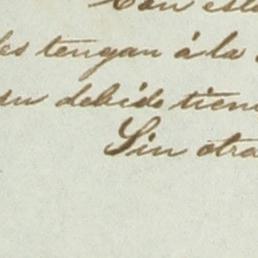 Con est
les tengan á la
su debido tiem
Sin otra